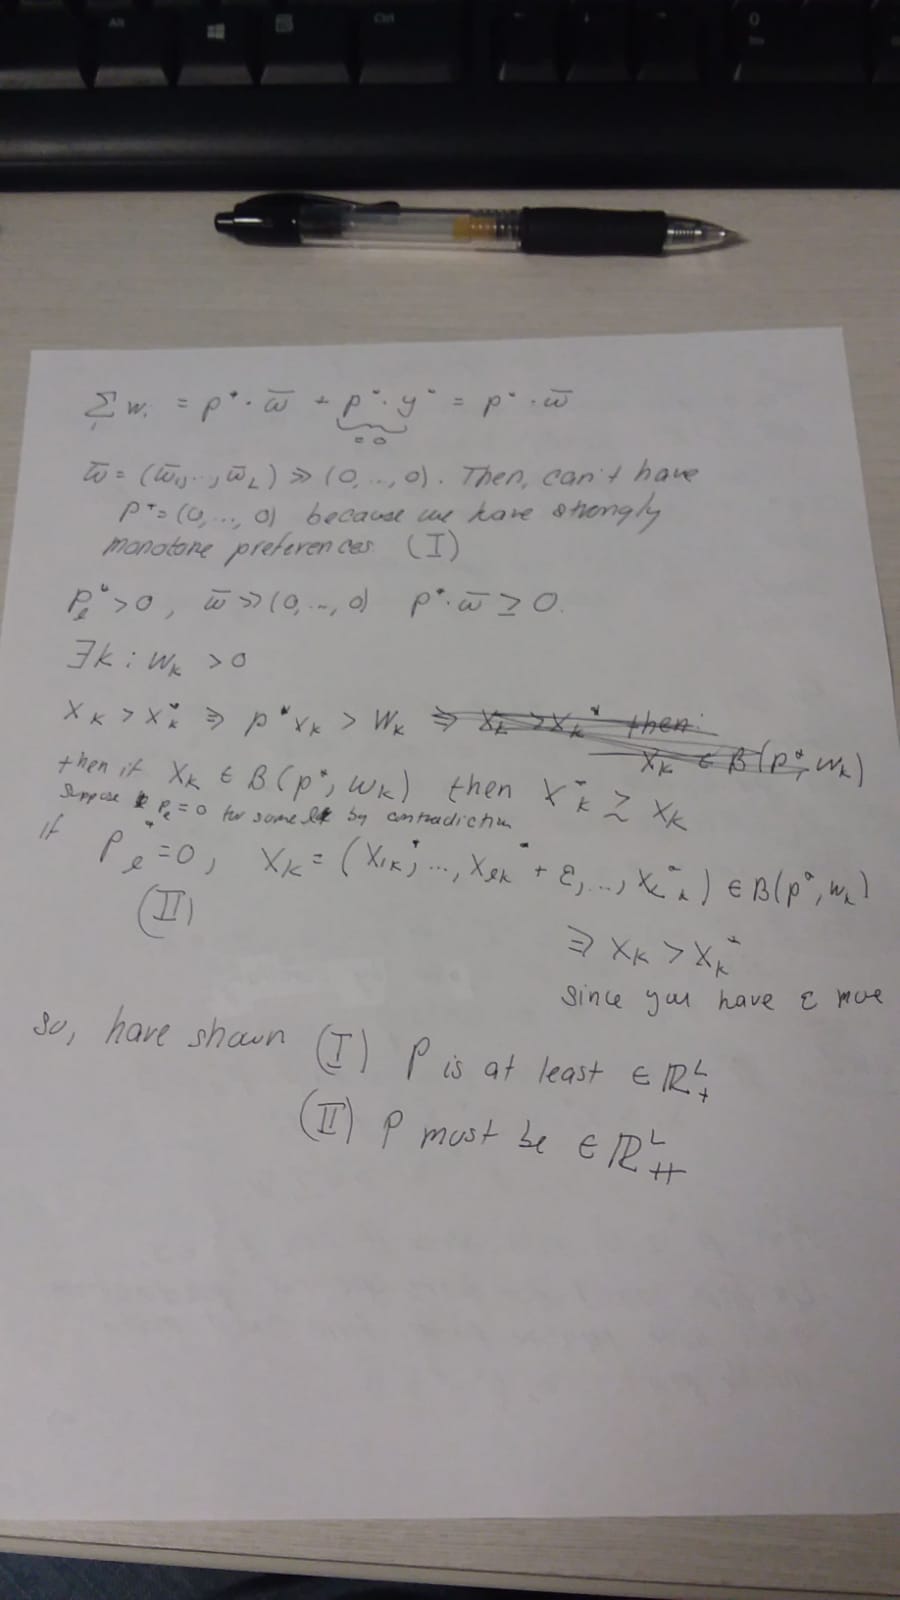 Alt
Ctrl
0
Ins
∑ᵢ wᵢ = p* · ω̄ + p* · y* = p* · ω̄
= 0
ω̄ = (ω̄₁, ..., ω̄_L) ≫ (0, ..., 0). Then, can't have
p* = (0, ..., 0) because we have strongly
monotone preferences. (I)
p_ℓ* > 0, ω̄ ≫ (0, ..., 0) p* · ω̄ ≥ 0.
∃k : w_k > 0
x_k > x_k* ⇒ p* x_k > w_k ⇒ x_k > x_k* then:
x_k ∈ B(p*, w_k)
then if x_k ∈ B(p*, w_k) then x_k* ≳ x_k
Suppose p_ℓ = 0 for some ℓ by contradiction
if p_ℓ* = 0, x_k = (x₁k*, ..., x_ℓk* + ε, ..., x_Lk*) ∈ B(p*, w_k)
(II)
⇒ x_k > x_k*
since you have ε more
So, have shown (I) P is at least ∈ ℝ^L_+
(II) P must be ∈ ℝ^L_++